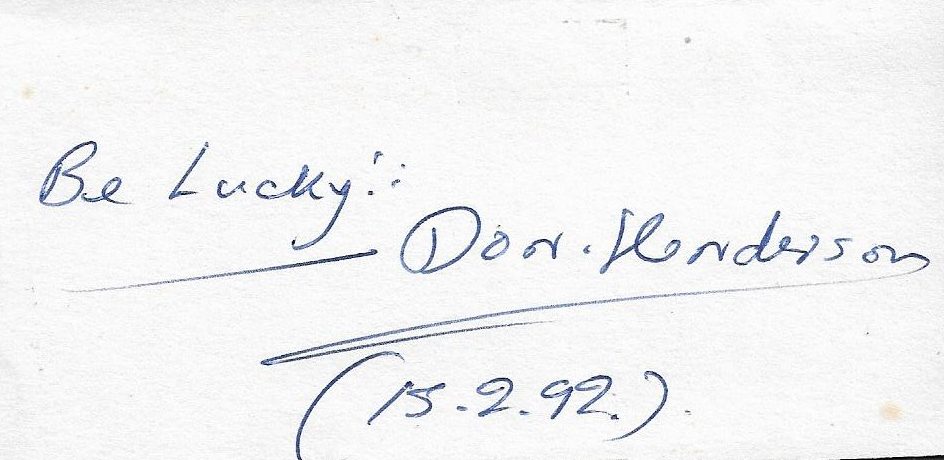 Be Lucky!!
Don. Henderson
(15.2.92.).